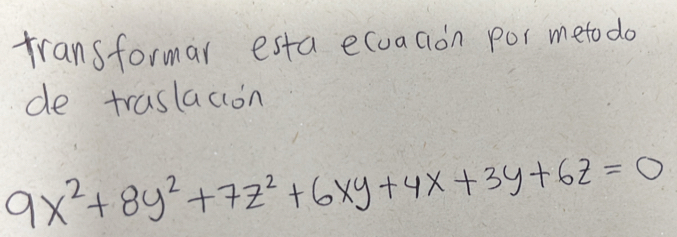 transformar esta ecuación por metodo
de traslación
9x²+8y²+7z²+6xy+4x+3y+6z=0